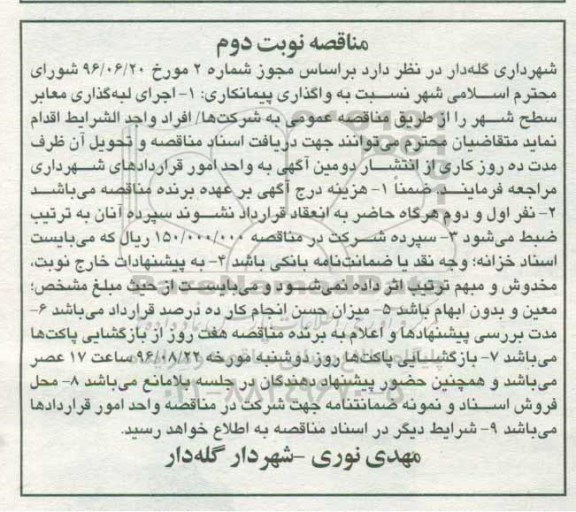 مناقصه نوبت دوم
شهرداری گله‌دار در نظر دارد براساس مجوز شماره ۲ مورخ ۹۶/۰۶/۲۰ شورای
محترم اسلامی شهر نسبت به واگذاری پیمانکاری: ۱- اجرای لبه‌گذاری معابر
سطح شهر را از طریق مناقصه عمومی به شرکت‌ها/ افراد واجد الشرایط اقدام
نماید متقاضیان محترم می‌توانند جهت دریافت اسناد مناقصه و تحویل آن ظرف
مدت ده روز کاری از انتشار دومین آگهی به واحد امور قراردادهای شهرداری
مراجعه فرمایند. ضمناً ۱- هزینه درج آگهی بر عهده برنده مناقصه می‌باشد
۲- نفر اول و دوم هرگاه حاضر به انعقاد قرارداد نشوند سپرده آنان به ترتیب
ضبط می‌شود ۳- سپرده شرکت در مناقصه ۱۵۰/۰۰۰/۰۰۰ ریال که می‌بایست
اسناد خزانه؛ وجه نقد یا ضمانت‌نامه بانکی باشد ۴- به پیشنهادات خارج نوبت،
مخدوش و مبهم ترتیب اثر داده نمی‌شود و می‌بایست از حیث مبلغ مشخص؛
معین و بدون ابهام باشد ۵- میزان حسن انجام کار ده درصد قرارداد می‌باشد ۶-
مدت بررسی پیشنهادها و اعلام به برنده مناقصه هفت روز از بازگشایی پاکت‌ها
می‌باشد ۷- بازگشایی پاکت‌ها روز دوشنبه مورخه ۹۶/۰۸/۲۲ ساعت ۱۷ عصر
می‌باشد و همچنین حضور پیشنهاد دهندگان در جلسه بلامانع می‌باشد ۸- محل
فروش اسناد و نمونه ضمانتنامه جهت شرکت در مناقصه واحد امور قراردادها
می‌باشد ۹- شرایط دیگر در اسناد مناقصه به اطلاع خواهد رسید.
مهدی نوری -شهردار گله‌دار